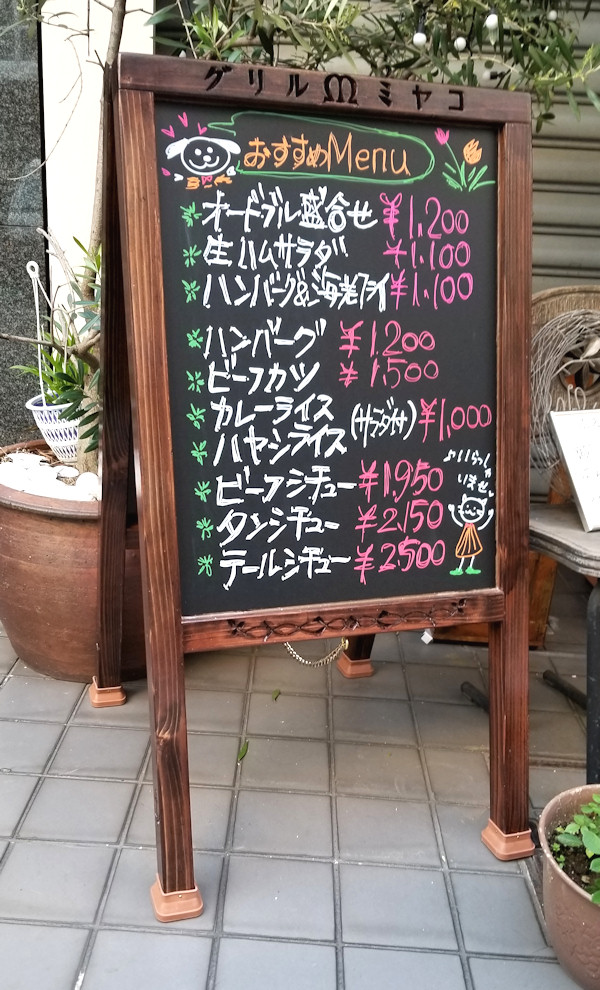 グリル M ミヤコ
おすすめMenu
オードブル盛合せ ¥1,200
生ハムサラダ ¥1,100
ハンバーグ&海老フライ ¥1,100
ハンバーグ ¥1,200
ビーフカツ ¥1,500
カレーライス
ハヤシライス
(サラダ付) ¥1,000
ビーフシチュー ¥1,950
タンシチュー ¥2,150
テールシチュー ¥2,500
♪いらっしゃ
いませ♥